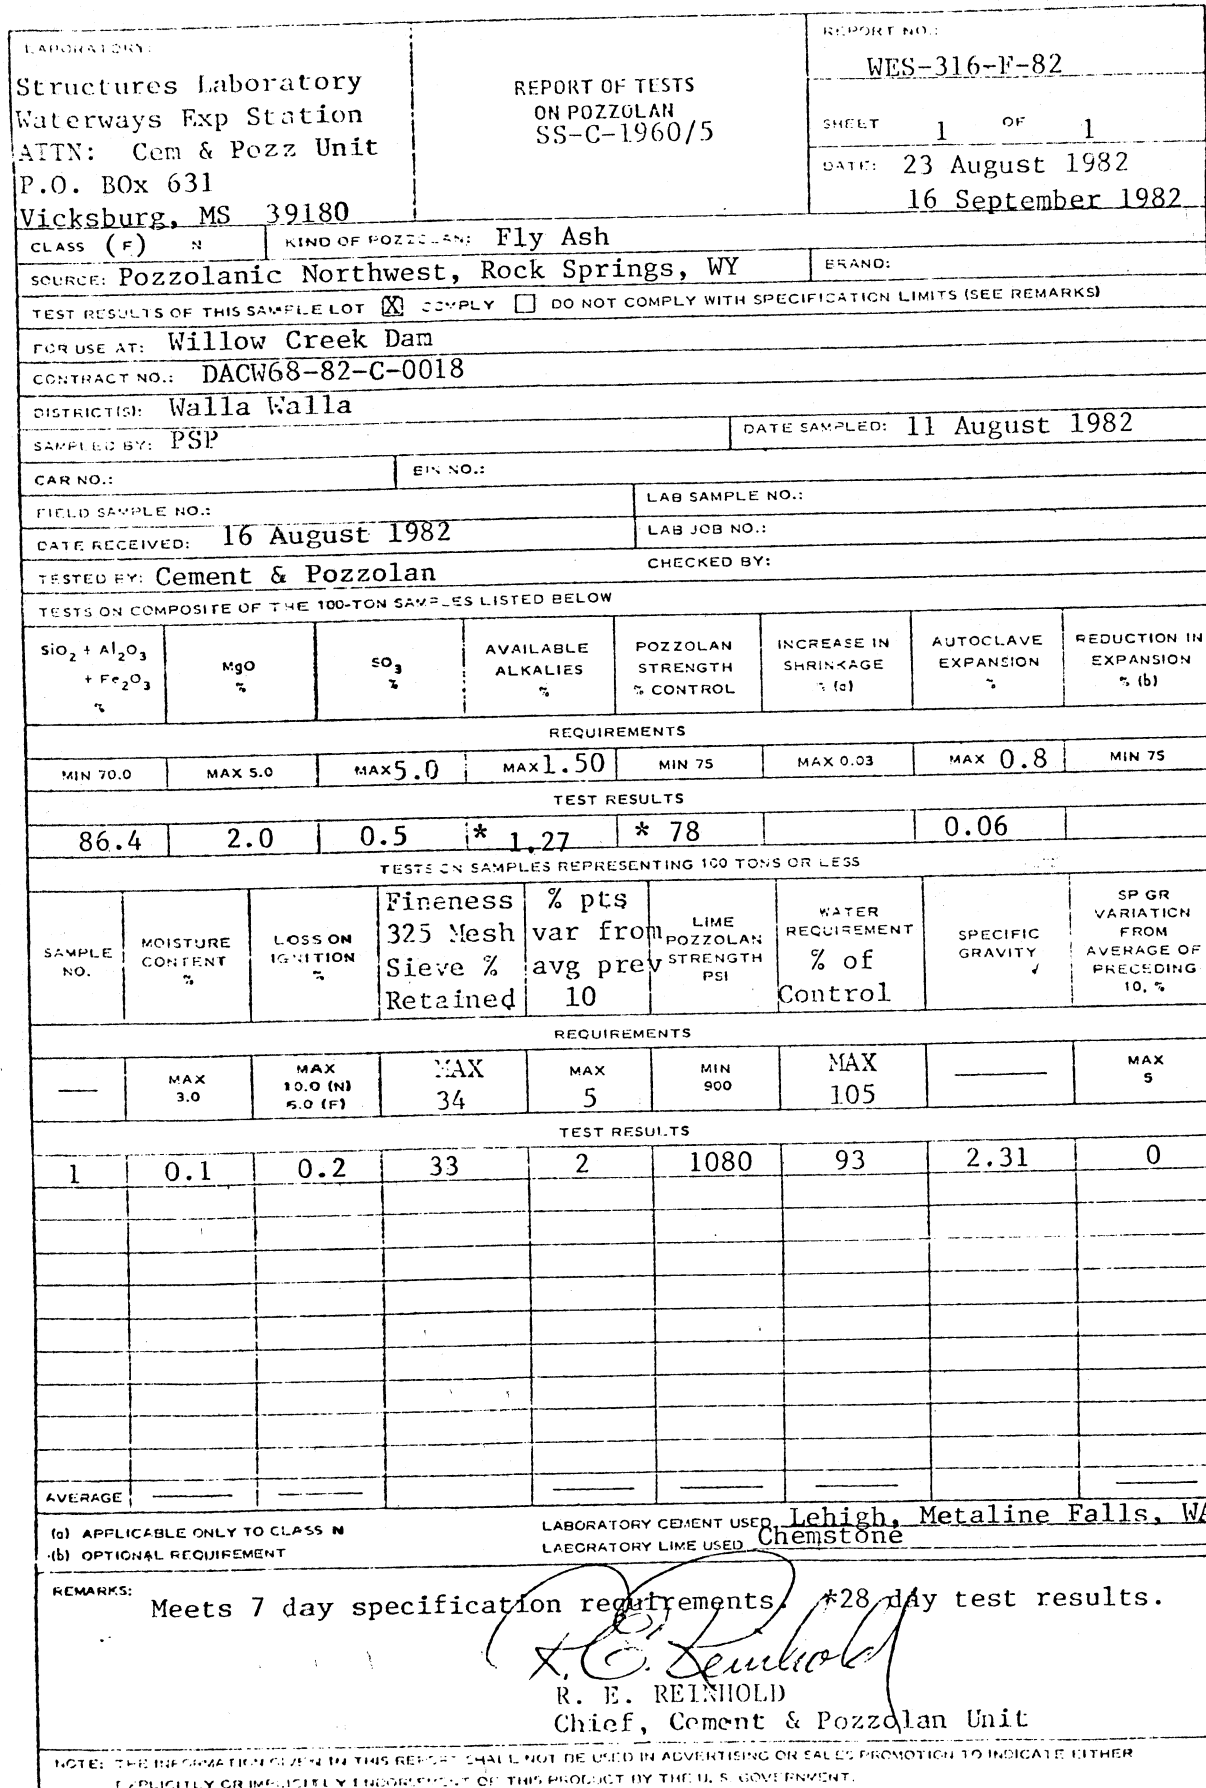 LABORATORY:
Structures Laboratory
Waterways Exp Station
ATTN: Cem & Pozz Unit
P.O. BOx 631
Vicksburg, MS 39180
REPORT OF TESTS
ON POZZOLAN
SS-C-1960/5
REPORT NO.:
WES-316-F-82
SHEET 1 OF 1
DATE: 23 August 1982
16 September 1982
CLASS (F) N KIND OF POZZOLAN: Fly Ash
SOURCE: Pozzolanic Northwest, Rock Springs, WY BRAND:
TEST RESULTS OF THIS SAMPLE LOT [X] COMPLY [ ] DO NOT COMPLY WITH SPECIFICATION LIMITS (SEE REMARKS)
FOR USE AT: Willow Creek Dam
CONTRACT NO.: DACW68-82-C-0018
DISTRICT(S): Walla Walla
SAMPLED BY: PSP DATE SAMPLED: 11 August 1982
CAR NO.: BIN NO.:
FIELD SAMPLE NO.: LAB SAMPLE NO.:
DATE RECEIVED: 16 August 1982 LAB JOB NO.:
TESTED BY: Cement & Pozzolan CHECKED BY:
TESTS ON COMPOSITE OF THE 100-TON SAMPLES LISTED BELOW
SiO2 + Al2O3 + Fe2O3 % MgO % SO3 % AVAILABLE ALKALIES % POZZOLAN STRENGTH % CONTROL INCREASE IN SHRINKAGE % (a) AUTOCLAVE EXPANSION % REDUCTION IN EXPANSION % (b)
REQUIREMENTS
MIN 70.0 MAX 5.0 MAX 5.0 MAX 1.50 MIN 75 MAX 0.03 MAX 0.8 MIN 75
TEST RESULTS
86.4 2.0 0.5 * 1.27 * 78 0.06
TESTS ON SAMPLES REPRESENTING 100 TONS OR LESS
SAMPLE NO. MOISTURE CONTENT % LOSS ON IGNITION % Fineness 325 Mesh Sieve % Retained % pts var from avg prev 10 LIME POZZOLAN STRENGTH PSI WATER REQUIREMENT % of Control SPECIFIC GRAVITY SP GR VARIATION FROM AVERAGE OF PRECEDING 10, %
REQUIREMENTS
— MAX 3.0 MAX 10.0 (N) 6.0 (F) MAX 34 MAX 5 MIN 900 MAX 105 — MAX 5
TEST RESULTS
1 0.1 0.2 33 2 1080 93 2.31 0
AVERAGE — — — — — —
(a) APPLICABLE ONLY TO CLASS N
(b) OPTIONAL REQUIREMENT
LABORATORY CEMENT USED Lehigh, Metaline Falls, WA
LABORATORY LIME USED Chemstone
REMARKS:
Meets 7 day specification requirements. *28 day test results.
R. E. Reinhold
R. E. REINHOLD
Chief, Cement & Pozzolan Unit
NOTE: THE INFORMATION GIVEN IN THIS REPORT SHALL NOT BE USED IN ADVERTISING OR SALES PROMOTION TO INDICATE EITHER
EXPLICITLY OR IMPLICITLY ENDORSEMENT OF THIS PRODUCT BY THE U. S. GOVERNMENT.